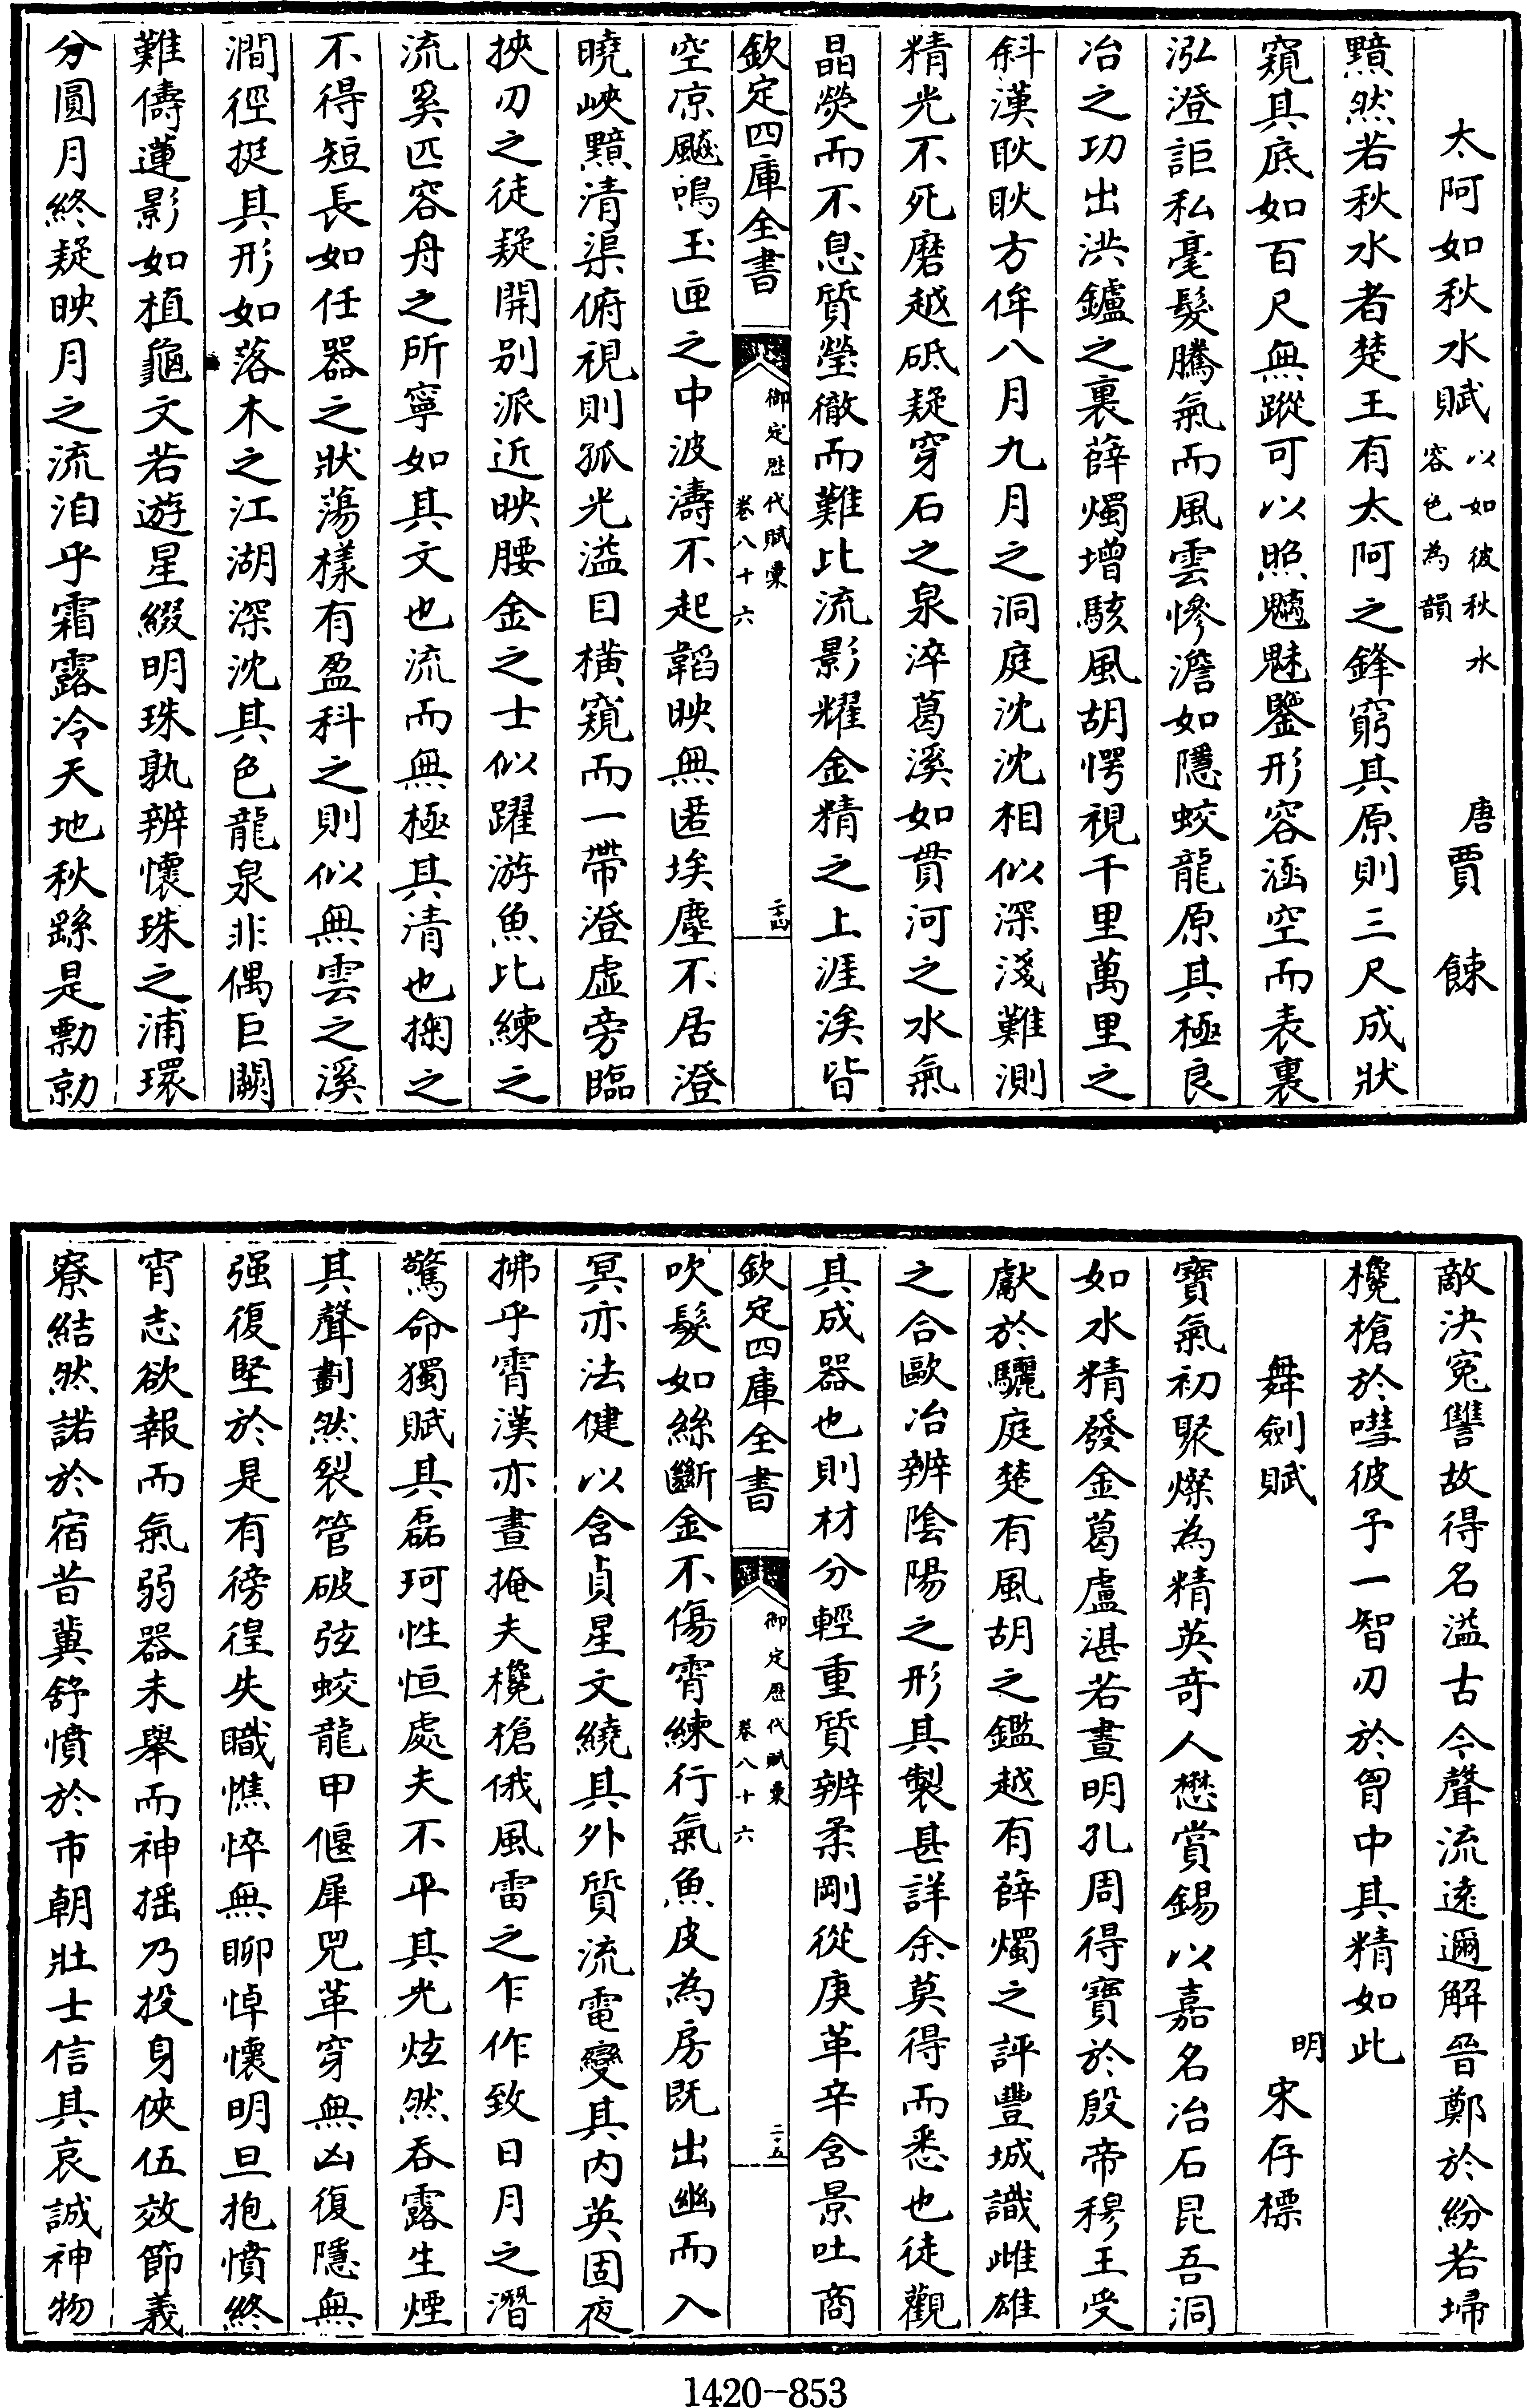 太阿如秋水賦以如彼秋水容色為韻　唐賈餗
黯然若秋水者楚王有太阿之鋒窮其原則三尺成狀
窺其底如百尺無蹤可以照魑魅鑒形容涵空而表裏
泓澄詎私毫髮騰氣而風雲慘澹如隱蛟龍原其極良
冶之功出洪鑪之裏薛燭增駭風胡愕視千里萬里之
斜漢耿耿方侔八月九月之洞庭沈沈相似深淺難測
精光不死磨越砥疑穿石之泉淬葛溪如貫河之水氣
晶熒而不息質瑩徹而難比流影耀金精之上涯涘皆
欽定四庫全書　御定歷代賦彙卷八十六　二十四
空凉飇鳴玉匣之中波濤不起韜映無匿埃塵不居澄
曉峽黯清渠俯視則孤光溢目橫窺而一帶澄虛旁臨
挾刃之徒疑開別派近映腰金之士似躍游魚比練之
流奚匹容舟之所寧如其文也流而無極其清也掬之
不得短長如任器之狀蕩樣有盈科之則似無雲之溪
澗徑挺其形如落木之江湖深沈其色龍泉非偶巨闕
難儔蓮影如植龜文若遊星綴明珠孰辨懷珠之浦環
分圓月終疑映月之流洎乎霜露冷天地秋繇是剽勍
敵決寃讐故得名溢古今聲流遠邇解晉鄭於紛若埽
欃槍於嘒彼予一智刃於胷中其精如此
舞劍賦　明宋存標
寶氣初聚燦為精英奇人懋賞錫以嘉名冶石昆吾洞
如水精發金葛盧湛若晝明孔周得寶於殷帝穆王受
獻於驪庭楚有風胡之鑑越有薛燭之評豐城識雌雄
之合歐冶辨陰陽之形其製甚詳余莫得而悉也徒觀
其成器也則材分輕重質辨柔剛從庚革辛含景吐商
欽定四庫全書　御定歷代賦彙卷八十六　二十五
吹髮如絲斷金不傷霄練行氣魚皮為房既出幽而入
冥亦法健以含貞星文繞其外質流電變其內英固夜
拂乎霄漢亦晝掩夫欃槍俄風雷之乍作致日月之潛
驚命獨賦其磊珂性恒處夫不平其光炫然吞露生煙
其聲劃然裂管破弦蛟龍甲偃犀兕革穿無凶復隱無
强復堅於是有徬徨失職憔悴無聊悼懷明旦抱憤終
宵志欲報而氣弱器未舉而神揺乃投身俠伍效節義
寮結然諾於宿昔冀舒憤於市朝壯士信其哀誠神物
1420-853